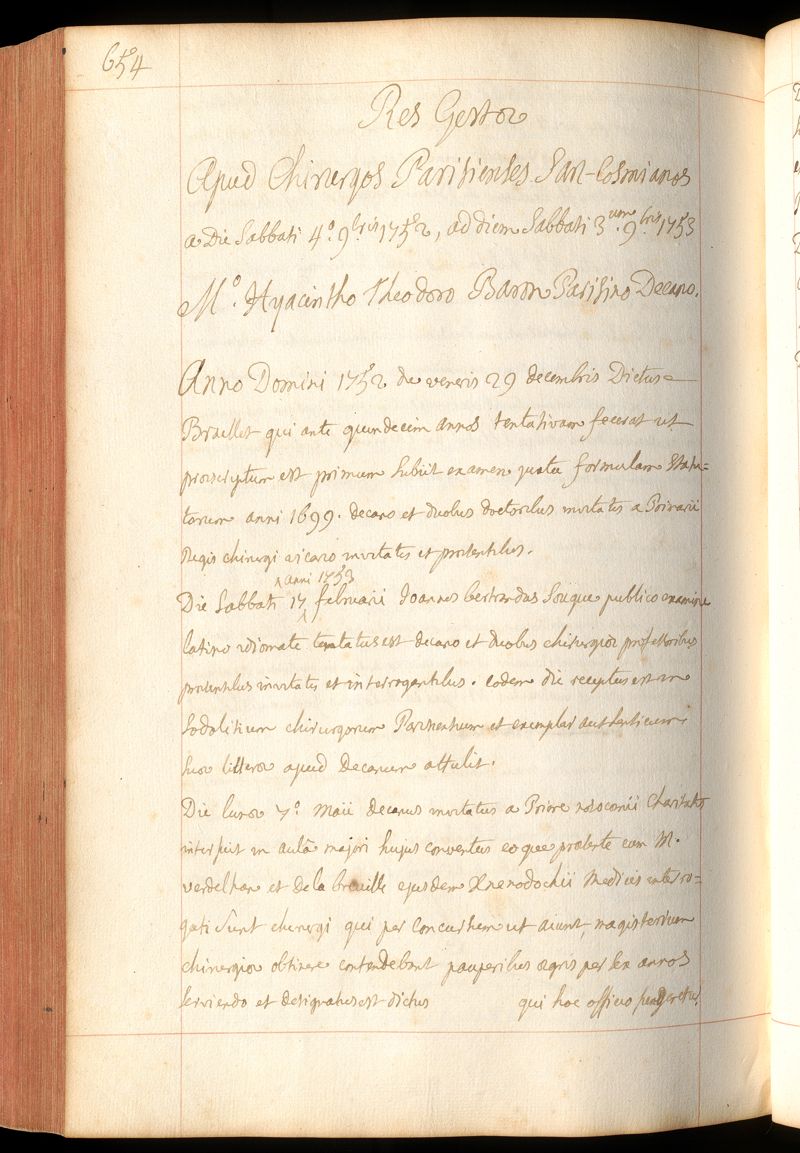 654
Res Gestæ
Apud Chirurgos Parisienses San-Cosmianos
a Die Sabbati 4.° 9.bris 1752, ad diem Sabbati 3.um 9.bris 1753
M.° Hyacintho Theodoro Baron Parisino Decano.
Anno Domini 1752 die veneris 29 decembris Dictus
Braillet qui ante quindecim annos tentativam fecerat ut
proescriptum est primum subiit examen juxta formulam statu=
torum anni 1699. decano et duobus doctoribus invitatis a
Regis chirurgi vicario invitatis et præsentibus.
anni 1753
Die Sabbati 17 februarii Joannes bertrandus Souque publico examine
latino idiomate tentatus est decano et duobus chirurgiæ professoribus
præsentibus invitatis et interrogantibus. eodem die receptus est in
Sodalitium chirurgorum Parisiensium et exemplar authenticum
huæ litteræ apud decanum attulit.
Die lunæ 7.° Maii decanus invitatus a Priore nosocomii Charitatis
interfuit in aulâ majori hujus conventus eoque præsente cum M.
verdelhan et De la breuille ejusdem Xnenodochii Medicis interro=
gati sunt chirurgi qui per Concursum ut aiunt, magisterium
chirurgiæ obtinere contendebant pauperibus ægris per sex annos
serviendo et designatus est dictus qui hoc officio fungeretur.